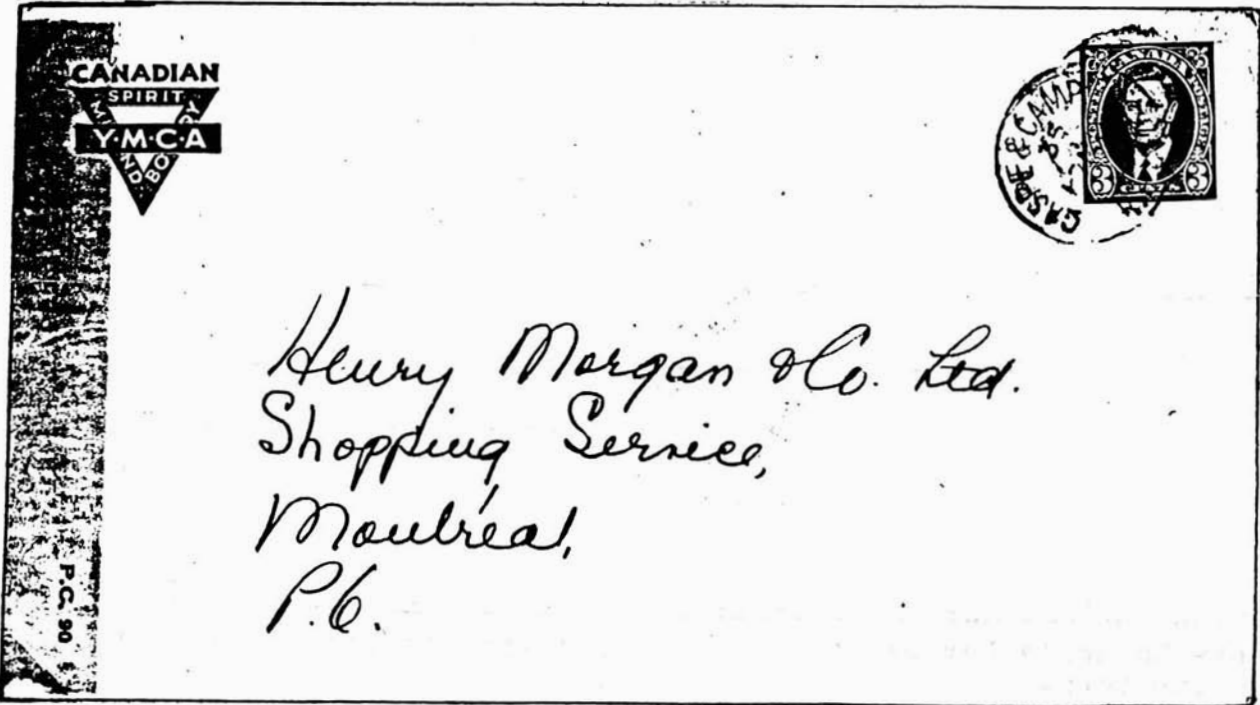 CANADIAN
SPIRIT
MIND
BODY
Y·M·C·A
GASPE & CAMP
POSTES CANADA POSTAGE
3 3
Henry Morgan & Co. Ltd.
Shopping Service,
Montreal,
P.Q.
P.C. 90